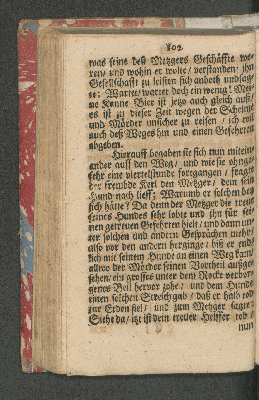 102
was seine deß Metzgers Geschäffte we-
ren / und wohin er wolte / verstanden / ihn
Gesellschafft zu leisten sich anbott / undsag-
te: Wartet / wartet doch ein wenig! Mei-
ne Kanne Bier ist jetzo auch gleich auß /
es ist zu dieser Zeit wegen der Schelmen
und Mörder unsicher zu reisen / ich will
auch deß Weges hin und einen Gefehrten
abgeben.
Hierauff begaben sie sich nun mitein-
ander auff den Weg / und wie sie ohnge-
fehr eine viertelstunde fortgangen / fragte
der frembde Kerl den Metzger / dem sein
Hund nach lieff: Warumb er solchen bey
sich hätte? Da denn der Metzger die treue
seines Hundes sehr lobte und ihn für sei-
nen getreuen Gefehrten hielt / und dann un-
ter solchen und andern Gesprächen mehr /
also vor den andern herginge / biß er end-
lich mit seinem Hunde an einen Weg kam /
allwo der Mörder seinen Vortheil außge-
sehen / ein grosses unter dem Rock verbor-
genes Beil hervor zohe / und dem Hunde
einen solchen Streich gab / daß er halb tod
zur Erden fiel / und zum Metzger sagte:
Siehe da / itzt ist dein treuer Helffer tod /
nun